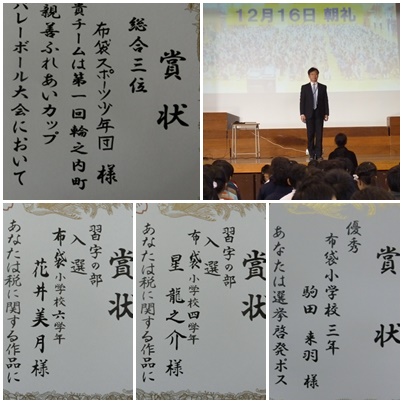 賞状
総合三位
布袋スポーツ少年団 様
貴チームは第一回輪之内町
親善ふれあいカップ
バレーボール大会において
12月16日 朝礼
賞状
習字の部
入選
布袋小学校六学年
花井美月 様
あなたは税に関する作品に
賞状
習字の部
入選
布袋小学校四学年
星 龍之介 様
あなたは税に関する作品に
賞状
優秀
布袋小学校 三年
駒田 来羽 様
あなたは選挙啓発ポス